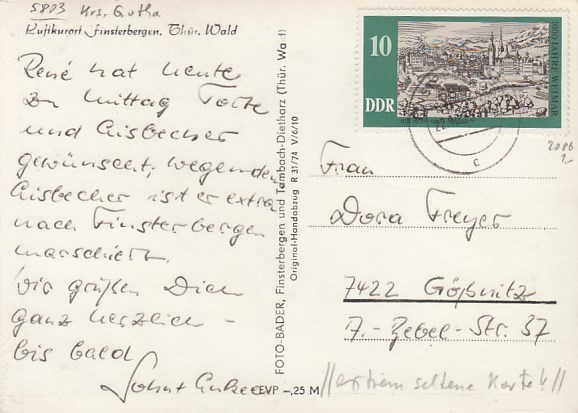 5803 Krs. Gotha
Luftkurort Finsterbergen, Thür. Wald
René hat heute
zu Mittag Torte
und Eisbecher
gewünscht, wegen den
Eisbecher ist er extra
nach Finsterbergen
marschiert.
Wir grüßen Dich
ganz herzlich -
bis bald
FOTO-BADER, Finsterbergen und Tambach-Dietharz (Thür. Wald)
Original-Handabzug R 31/74 V/6/10
EVP -,25 M
10
DDR
1000 JAHRE WEIMAR
c
2086
Frau
Dora Freyer
7422 Gößnitz
A.-Bebel-Str. 37
//extrem seltene Karte!//